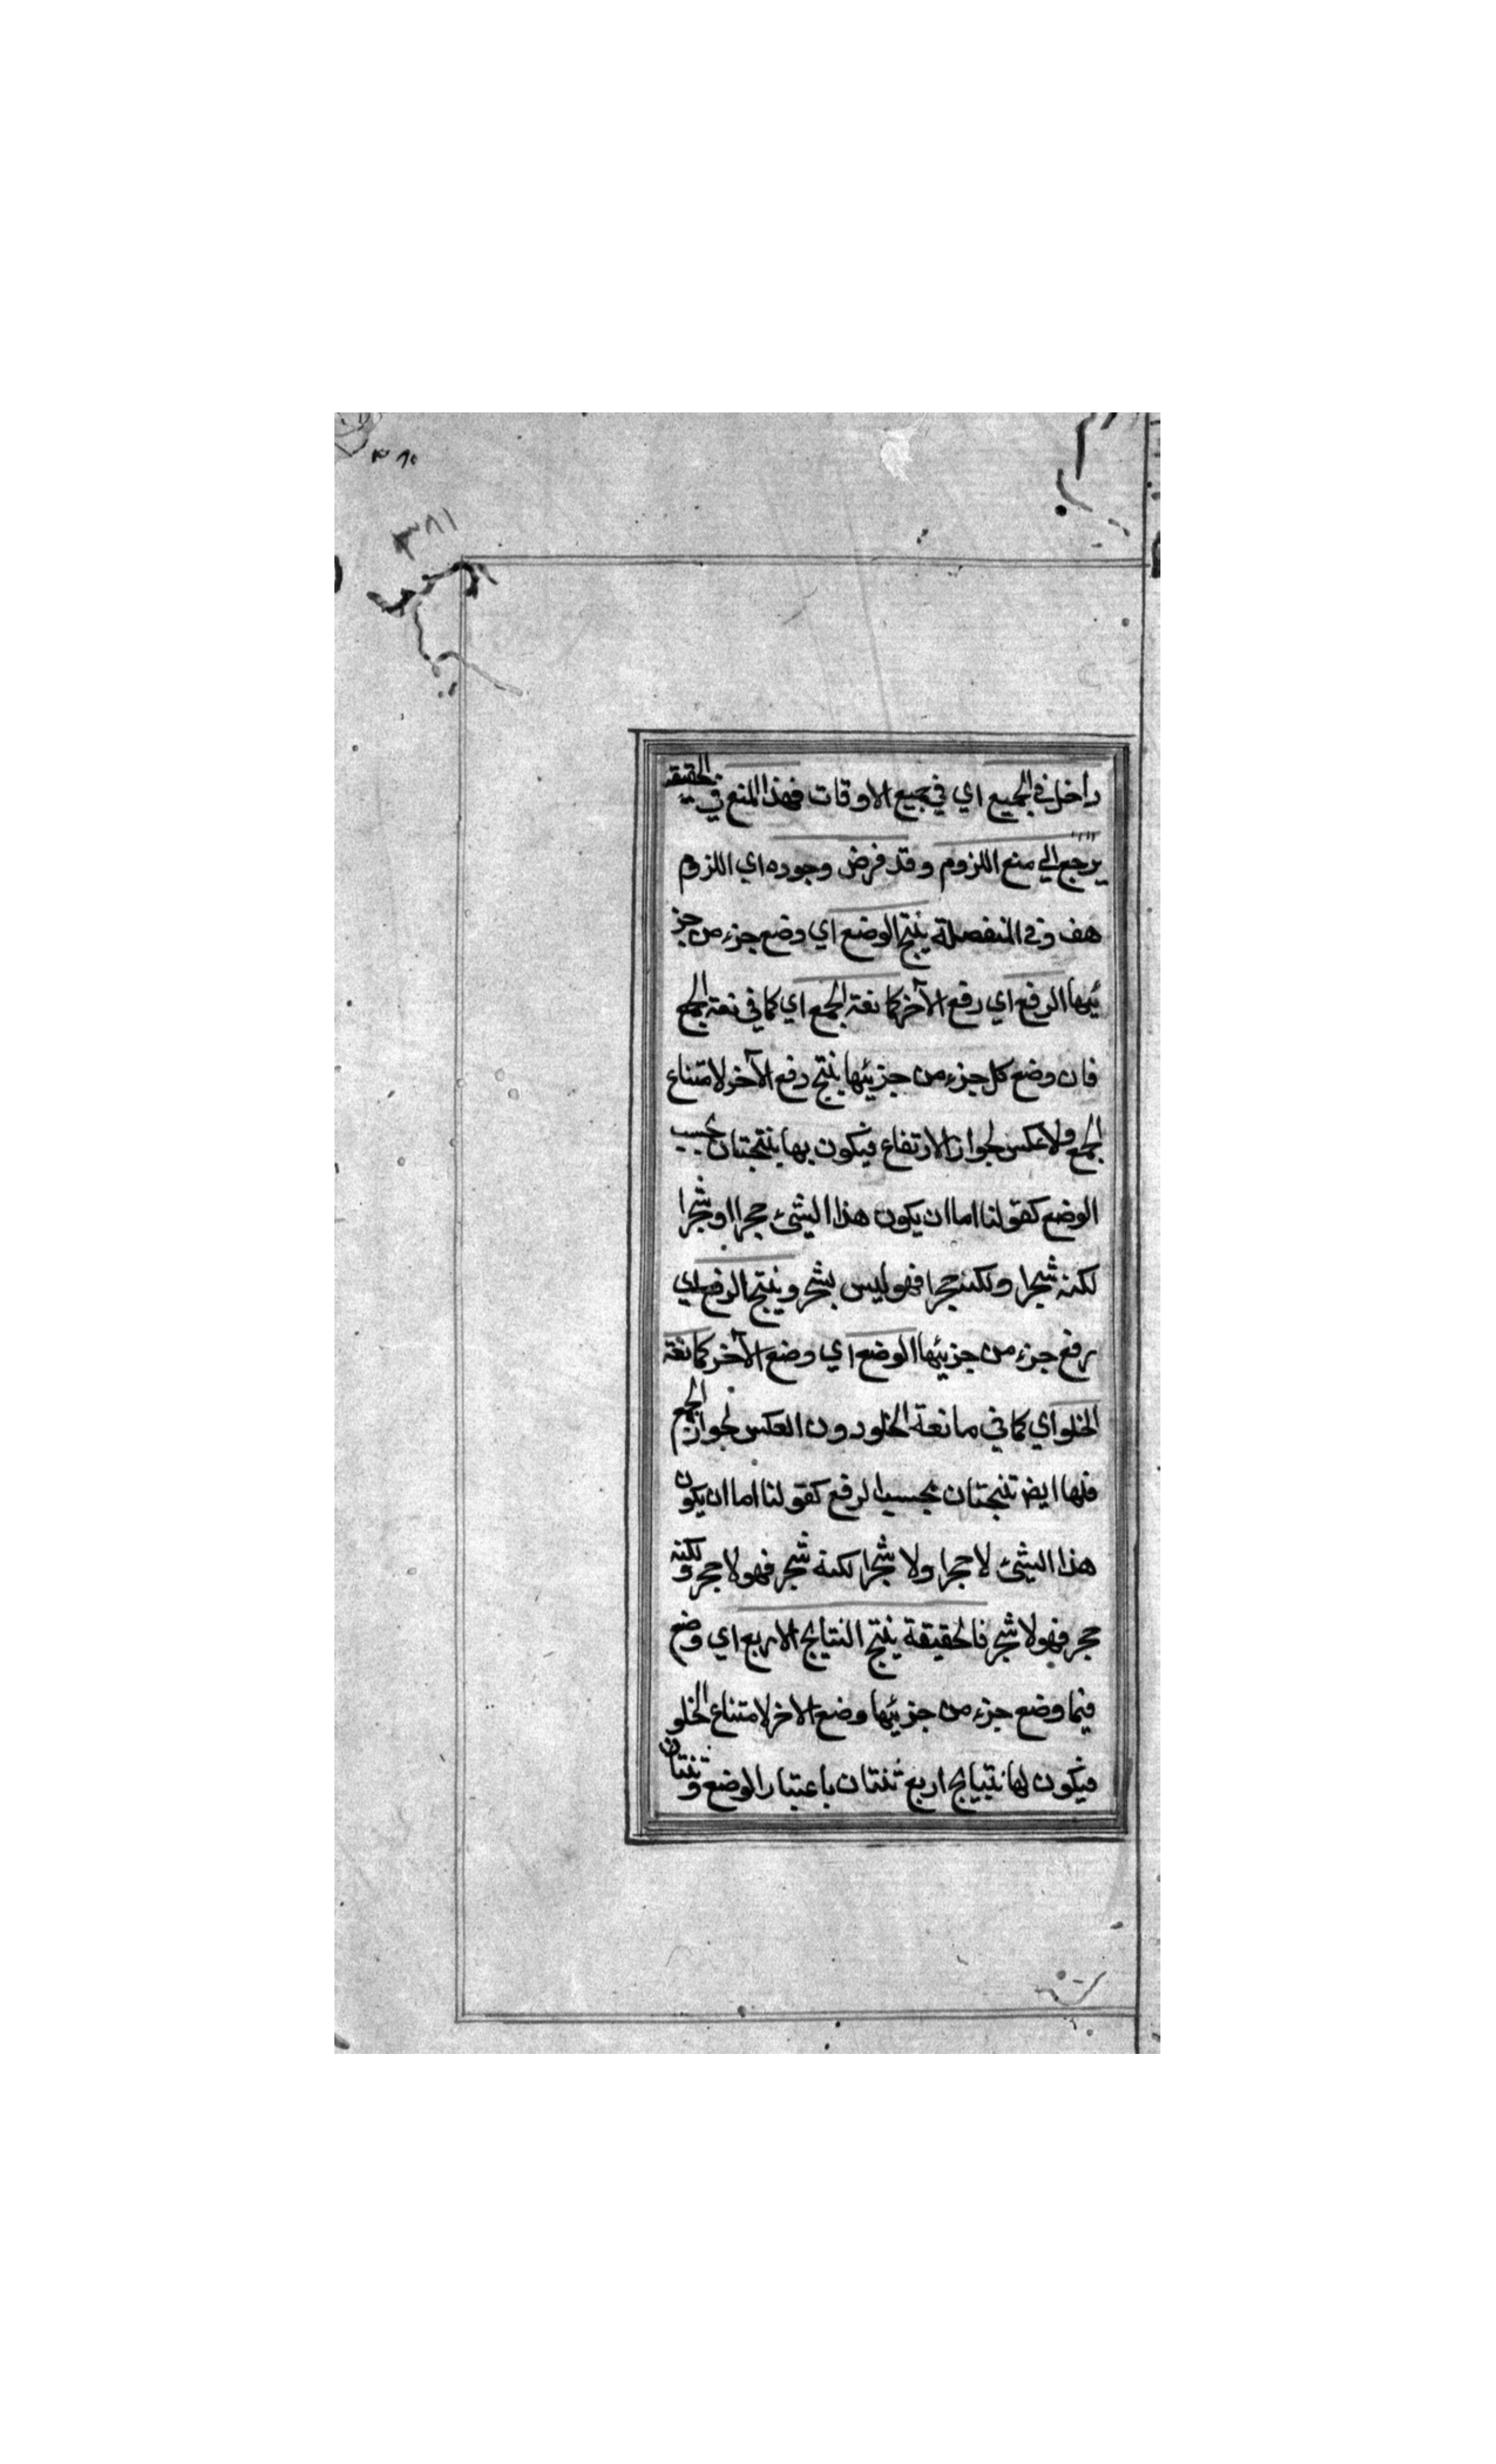 ٣٨١
داخل في الجميع اي في جميع الاوقات فهذا المنع في الحقيقه
يرجع الي منع اللزوم وقد فرض وجوده اي اللزوم
هف وفي المنفصلة ينتج الوضع اي وضع جزء من جز
ئيها الرفع اي رفع الآخر كمانعة الجمع اي كما في نعة الجمع
فان وضع كل جزء من جزئيها ينتج رفع الآخر لامتناع
الجمع ولا عكس لجواز الارتفاع فيكون بها ينتجتان بحسب
الوضع كقولنا اما ان يكون هذا الشئ حجرا او شجرا
لكنه شجرا ولكنه حجرا فهو ليس بشجر وينتج الرفع اي
رفع جزء من جزئيها الوضع اي وضع الآخر كمانعة
الخلو اي كما في مانعة الخلو دون العكس لجواز الجمع
فلها ايضا تنتجتان بحسب الرفع كقولنا اما ان يكون
هذا الشئ لا حجرا ولا شجرا لكنه شجر فهو لا حجر ولكنه
حجر فهو لا شجر فالحقيقة ينتج النتايج الاربع اي وضع
فيما وضع جزء من جزئيها وضع الاخر لامتناع الخلو
فيكون لها نتيايج اربع ثنتان باعتبار الوضع وثنتان